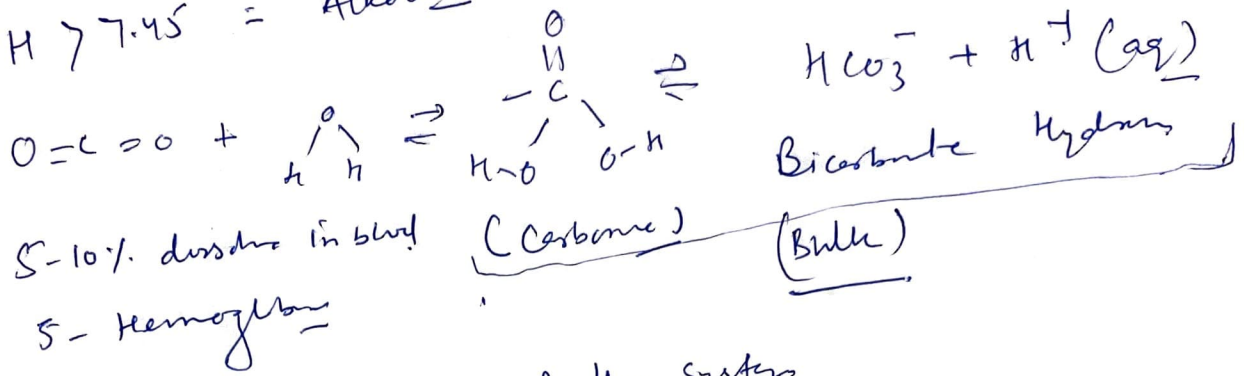 H > 7.45 =
O
||
- C
O=C=O + O ⇌ ⇌ HCO3⁻ + H⁺ (aq)
H H H-O O-H Bicarbonate Hydrogen
5-10% dissolve in blood (Carbonic) (Bulk)
5- Hemoglobin
System